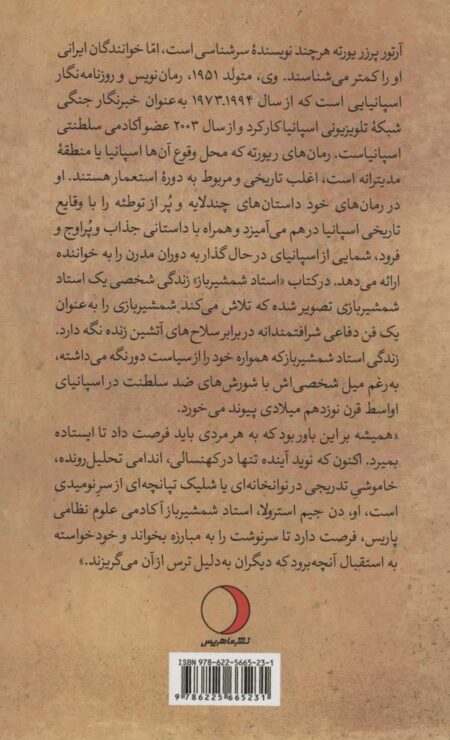 آرتور پرز ریورته هرچند نویسندهٔ سرشناسی است، امّا خوانندگان ایرانی
او را کمتر می‌شناسند. وی، متولّد ۱۹۵۱، رمان‌نویس و روزنامه‌نگار
اسپانیایی است که از سال ۱۹۷۳.۱۹۹۴ به‌عنوان خبرنگار جنگی
شبکهٔ تلویزیونی اسپانیا کار کرد و از سال ۲۰۰۳ عضو آکادمی سلطنتی
اسپانیاست. رمان‌های ریورته که محل وقوع آن‌ها اسپانیا یا منطقهٔ
مدیترانه است، اغلب تاریخی و مربوط به دورهٔ استعمار هستند. او
در رمان‌های خود داستان‌های چندلایه و پُر از توطئه را با وقایع
تاریخی اسپانیا در هم می‌آمیزد و همراه با داستانی جذاب و پُراوج و
فرود، شمایی از اسپانیای در حال گذار به دوران مدرن را به خواننده
ارائه می‌دهد. در کتاب «استاد شمشیرباز» زندگی شخصی یک استاد
شمشیربازی تصویر شده که تلاش می‌کند شمشیربازی را به‌عنوان
یک فن دفاعی شرافتمندانه در برابر سلاح‌های آتشین زنده نگه دارد.
زندگی استاد شمشیرباز که همواره خود را از سیاست دور نگه می‌داشته،
به‌رغم میل شخصی‌اش با شورش‌های ضد سلطنت در اسپانیای
اواسط قرن نوزدهم میلادی پیوند می‌خورد.
«همیشه بر این باور بود که به هر مردی باید فرصت داد تا ایستاده
بمیرد. اکنون که نوید آینده تنها در کهنسالی، اندامی تحلیل‌رونده،
خاموشیِ تدریجی در نوانخانه‌ای یا شلیک تپانچه‌ای از سرِ نومیدی
است، او، دن جیم استرولا، استاد شمشیرباز آکادمی علوم نظامی
پاریس، فرصت دارد تا سرنوشت را به مبارزه بخواند و خودخواسته
به استقبال آنچه برود که دیگران به‌دلیل ترس از آن می‌گریزند.»
نشر ماهریس
ISBN 978-622-5665-23-1
9 786225 665231